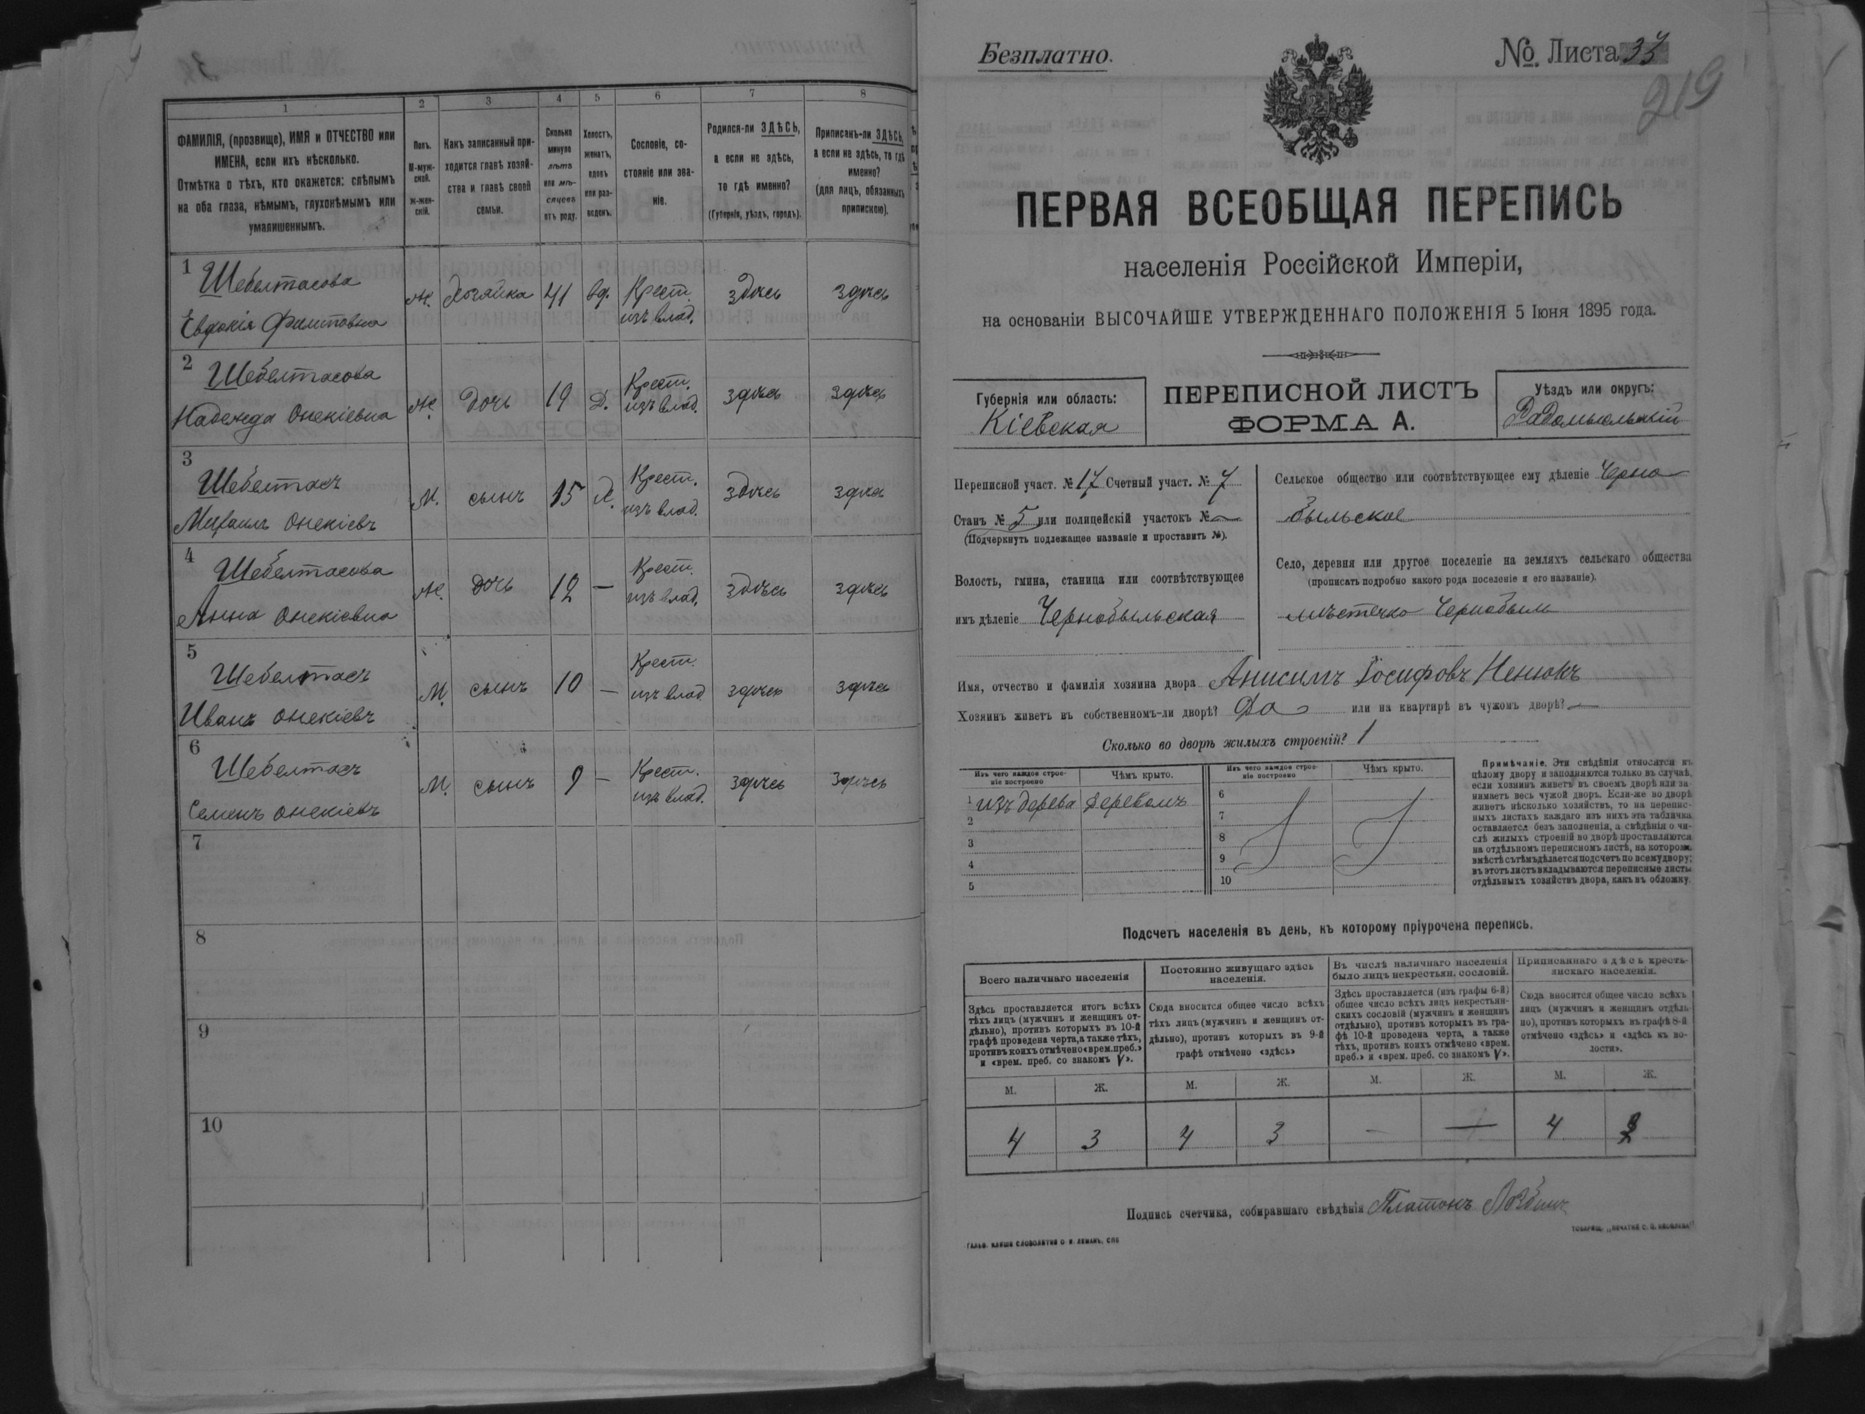 1
2
3
4
5
6
7
8
ФАМИЛІЯ, (прозвище), ИМЯ и ОТЧЕСТВО или
ИМЕНА, если ихъ нѣсколько.
Отмѣтка о тѣхъ, кто окажется: слѣпымъ
на оба глаза, нѣмымъ, глухонѣмымъ или
умалишеннымъ.
Полъ.
М-муж-
ской.
Ж-жен-
скій.
Какъ записанный при-
ходится главѣ хозяй-
ства и главѣ своей
семьи.
Сколько
минуло
лѣтъ
или мѣ-
сяцевъ
отъ роду.
Холостъ,
женатъ,
вдовъ
или раз-
веденъ.
Сословіе, со-
стояніе или зва-
ніе.
Родился-ли ЗДѢСЬ,
а если не здѣсь,
то гдѣ именно?
(Губернія, уѣздъ, городъ).
Приписанъ-ли ЗДѢСЬ,
а если не здѣсь, то гдѣ
именно?
(для лицъ, обязанныхъ
припискою).
1 Шебелтасова
Евдокія Филиповна
Ж. Хозяйка 41 вд. Крест. изъ влад. здѣсь здѣсь
2 Шебелтасова
Надежда Онекіевна
Ж. дочь 19 Д. Крест. изъ влад. здѣсь здѣсь
3 Шебелтасъ
Михаилъ Онекіевъ
М. сынъ 15 Х. Крест. изъ влад. здѣсь здѣсь
4 Шебелтасова
Анна Онекіевна
Ж. дочь 12 — Крест. изъ влад. здѣсь здѣсь
5 Шебелтасъ
Иванъ Онекіевъ
М. сынъ 10 — Крест. изъ влад. здѣсь здѣсь
6 Шебелтасъ
Семенъ Онекіевъ
М. сынъ 9 — Крест. изъ влад. здѣсь здѣсь
7
8
9
10
Безплатно.
№ Листа 37
219
ПЕРВАЯ ВСЕОБЩАЯ ПЕРЕПИСЬ
населенія Россійской Имперіи,
на основаніи ВЫСОЧАЙШЕ УТВЕРЖДЕННАГО ПОЛОЖЕНІЯ 5 Іюня 1895 года.
Губернія или область:
Кіевская
ПЕРЕПИСНОЙ ЛИСТЪ
ФОРМА А.
Уѣздъ или округъ:
Радомысльскій
Переписной участ. № 17 Счетный участ. № 7
Станъ № 5 или полицейскій участокъ № —
(Подчеркнуть подлежащее названіе и проставить №).
Волость, гмина, станица или соотвѣтствующее
имъ дѣленіе Чернобыльская
Сельское общество или соотвѣтствующее ему дѣленіе Черно
быльское
Село, деревня или другое поселеніе на земляхъ сельскаго общества
(прописать подробно какого рода поселеніе и его названіе).
мѣстечко Чернобыль
Имя, отчество и фамилія хозяина двора Анисимъ Іосифовъ Ненюкъ
Хозяинъ живетъ въ собственномъ-ли дворѣ? Да или на квартирѣ въ чужомъ дворѣ? —
Сколько во дворѣ жилыхъ строеній? 1
Изъ чего каждое строе-
ніе построено
Чѣмъ крыто.
Изъ чего каждое строе-
ніе построено
Чѣмъ крыто.
1 изъ дерева деревомъ
2
3
4
5
6
7
8
9
10
Примѣчаніе. Эти свѣдѣнія относятся къ
цѣлому двору и заполняются только въ случаѣ,
если хозяинъ живетъ въ своемъ дворѣ или за-
нимаетъ весь чужой дворъ. Если-же во дворѣ
живетъ нѣсколько хозяйствъ, то на перепис-
ныхъ листахъ каждаго изъ нихъ эта табличка
оставляется безъ заполненія, а свѣдѣнія о чи-
слѣ жилыхъ строеній во дворѣ проставляются
на отдѣльномъ переписномъ листѣ, на которомъ
вмѣстѣ съ тѣмъ дѣлается подсчетъ по всему двору;
въ этотъ листъ вкладываются переписные листы
отдѣльныхъ хозяйствъ двора, какъ въ обложку.
Подсчетъ населенія въ день, къ которому пріурочена перепись.
Всего наличнаго населенія
Здѣсь проставляется итогъ всѣхъ
тѣхъ лицъ (мужчинъ и женщинъ от-
дѣльно), противъ которыхъ въ 10-й
графѣ проведена черта, а также тѣхъ,
противъ коихъ отмѣчено «врем. преб.»
и «врем. преб. со знакомъ V».
Постоянно живущаго здѣсь
населенія.
Сюда вносится общее число всѣхъ
тѣхъ лицъ (мужчинъ и женщинъ от-
дѣльно), противъ которыхъ въ 9-й
графѣ отмѣчено «здѣсь»
Въ числѣ наличнаго населенія
было лицъ некрестьян. сословій.
Здѣсь проставляется (изъ графы 6-й)
общее число всѣхъ лицъ некрестьян-
скихъ сословій (мужчинъ и женщинъ
отдѣльно), противъ которыхъ въ гра-
фѣ 10-й проведена черта, а также
тѣхъ, противъ коихъ отмѣчено «врем.
преб.» и «врем. преб. со знакомъ V».
Приписаннаго здѣсь кресть-
янскаго населенія.
Сюда вносится общее число всѣхъ
лицъ (мужчинъ и женщинъ отдѣль-
но), противъ которыхъ въ графѣ 8-й
отмѣчено «здѣсь» и «здѣсь въ во-
лости».
М. Ж. М. Ж. М. Ж. М. Ж.
4 3 4 3 — — 4
Подпись счетчика, собиравшаго свѣдѣнія Платонъ